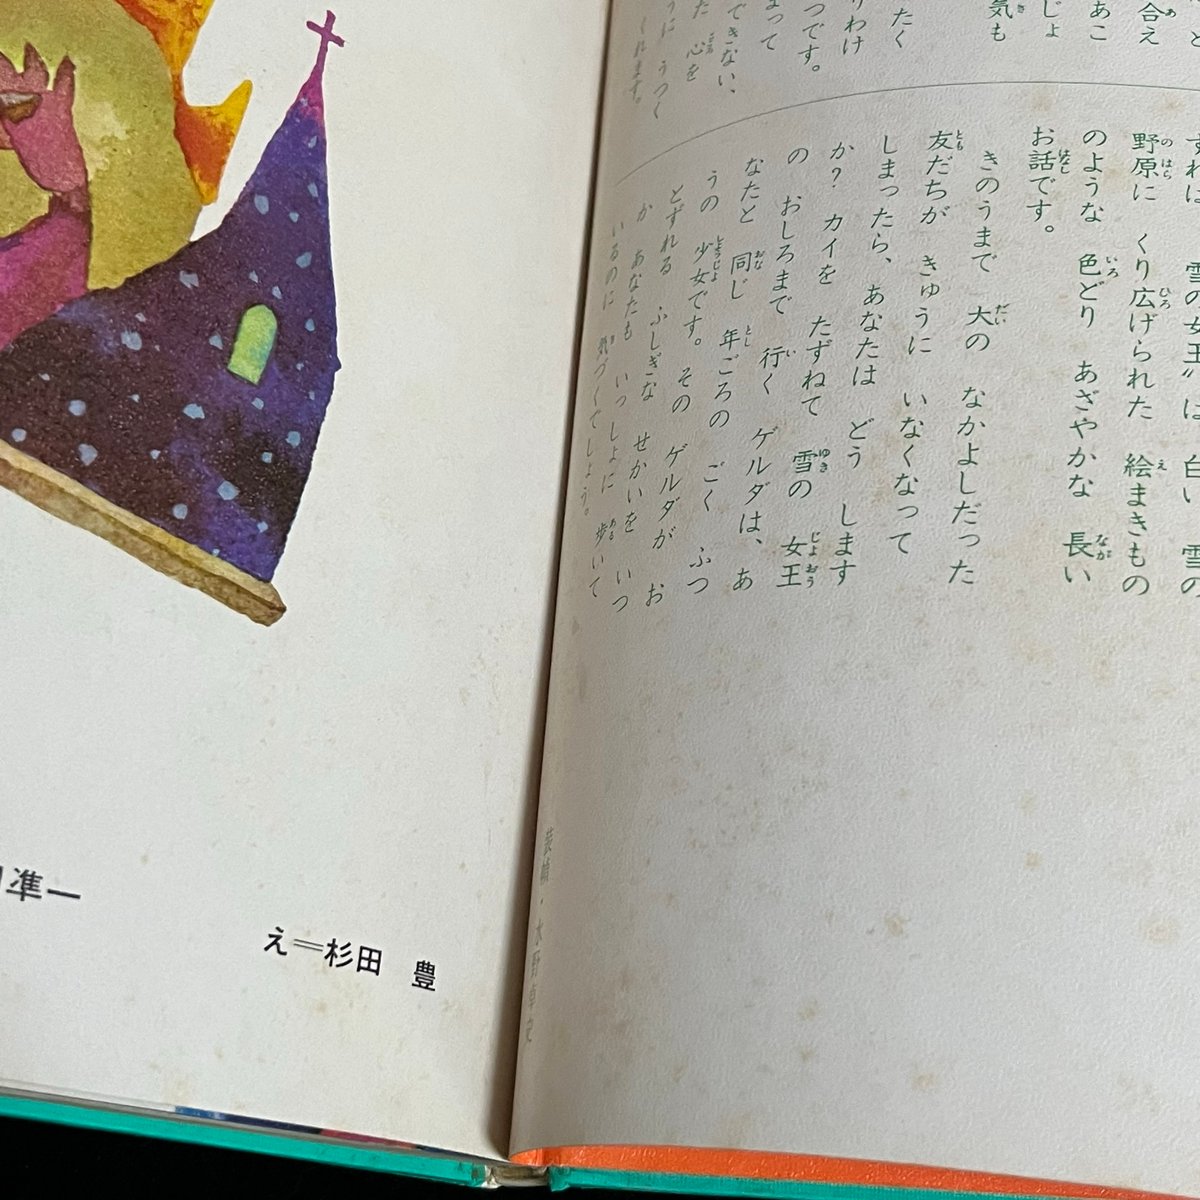 合え
あこ
じょ
気も
たく
りわけ
つです。
まって
できない、
た 心を
うに うつく
くれます。
すれば "雪の女王"は 白い 雪の
野原に くり広げられた 絵まきもの
のような 色どり あざやかな 長い
お話です。
きのうまで 大の なかよしだった
友だちが きゅうに いなくなって
しまったら、あなたは どう します
か? カイを たずねて 雪の 女王
の おしろまで 行く ゲルダは、あ
なたと 同じ 年ごろの ごく ふつ
うの 少女です。その ゲルダが お
とずれる ふしぎな せかいを いつ
か あなたも いっしょに 歩いて
いるのに 気づくでしょう。
装幀・水野卓史
準一
え＝杉田 豊